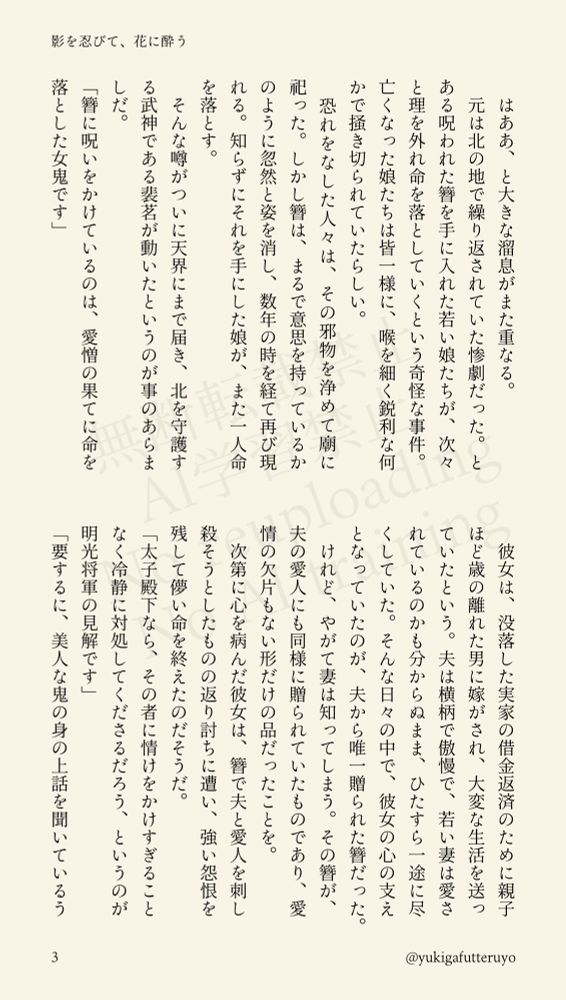 影を忍びて、花に酔う
はああ、と大きな溜息がまた重なる。
元は北の地で繰り返されていた惨劇だった。と
ある呪われた簪を手に入れた若い娘たちが、次々
と理を外れ命を落としていくという奇怪な事件。
亡くなった娘たちは皆一様に、喉を細く鋭利な何
かで掻き切られていたらしい。
恐れをなした人々は、その邪物を浄めて廟に
祀った。しかし簪は、まるで意思を持っているか
のように忽然と姿を消し、数年の時を経て再び現
れる。知らずにそれを手にした娘が、また一人命
を落とす。
そんな噂がついに天界にまで届き、北を守護す
る武神である裴茗が動いたというのが事のあらま
しだ。
「簪に呪いをかけているのは、愛憎の果てに命を
落とした女鬼です」
彼女は、没落した実家の借金返済のために親子
ほど歳の離れた男に嫁がされ、大変な生活を送っ
ていたという。夫は横柄で傲慢で、若い妻は愛さ
れているのかも分からぬまま、ひたすら一途に尽
くしていた。そんな日々の中で、彼女の心の支え
となっていたのが、夫から唯一贈られた簪だった。
けれど、やがて妻は知ってしまう。その簪が、
夫の愛人にも同様に贈られていたものであり、愛
情の欠片もない形だけの品だったことを。
次第に心を病んだ彼女は、簪で夫と愛人を刺し
殺そうとしたものの返り討ちに遭い、強い怨恨を
残して儚い命を終えたのだそうだ。
「太子殿下なら、その者に情けをかけすぎること
なく冷静に対処してくださるだろう、というのが
明光将軍の見解です」
「要するに、美人な鬼の身の上話を聞いているう
無断転載禁止
AI学習禁止
No reuploading
No AI training
3
@yukigafutteruyo